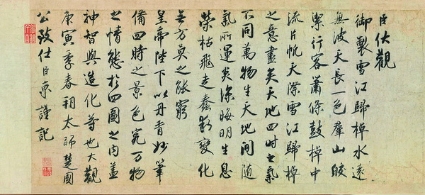 臣伏觀
御製雪江歸棹水遠
無波天長一色群山皎
潔行客蕭條鼓棹中
流片帆天際雪江歸棹
之意盡矣天地四時之氣
不同萬物生天地間隨
氣所運炎涼晦明生息
榮枯飛走蠢動變化
無方莫之能窮
皇帝陛下以丹青妙筆
備四時之景色究萬物
之情態於四圖之内蓋
神智與造化等也大觀
庚寅季春朔太師楚國
公致仕臣京謹記